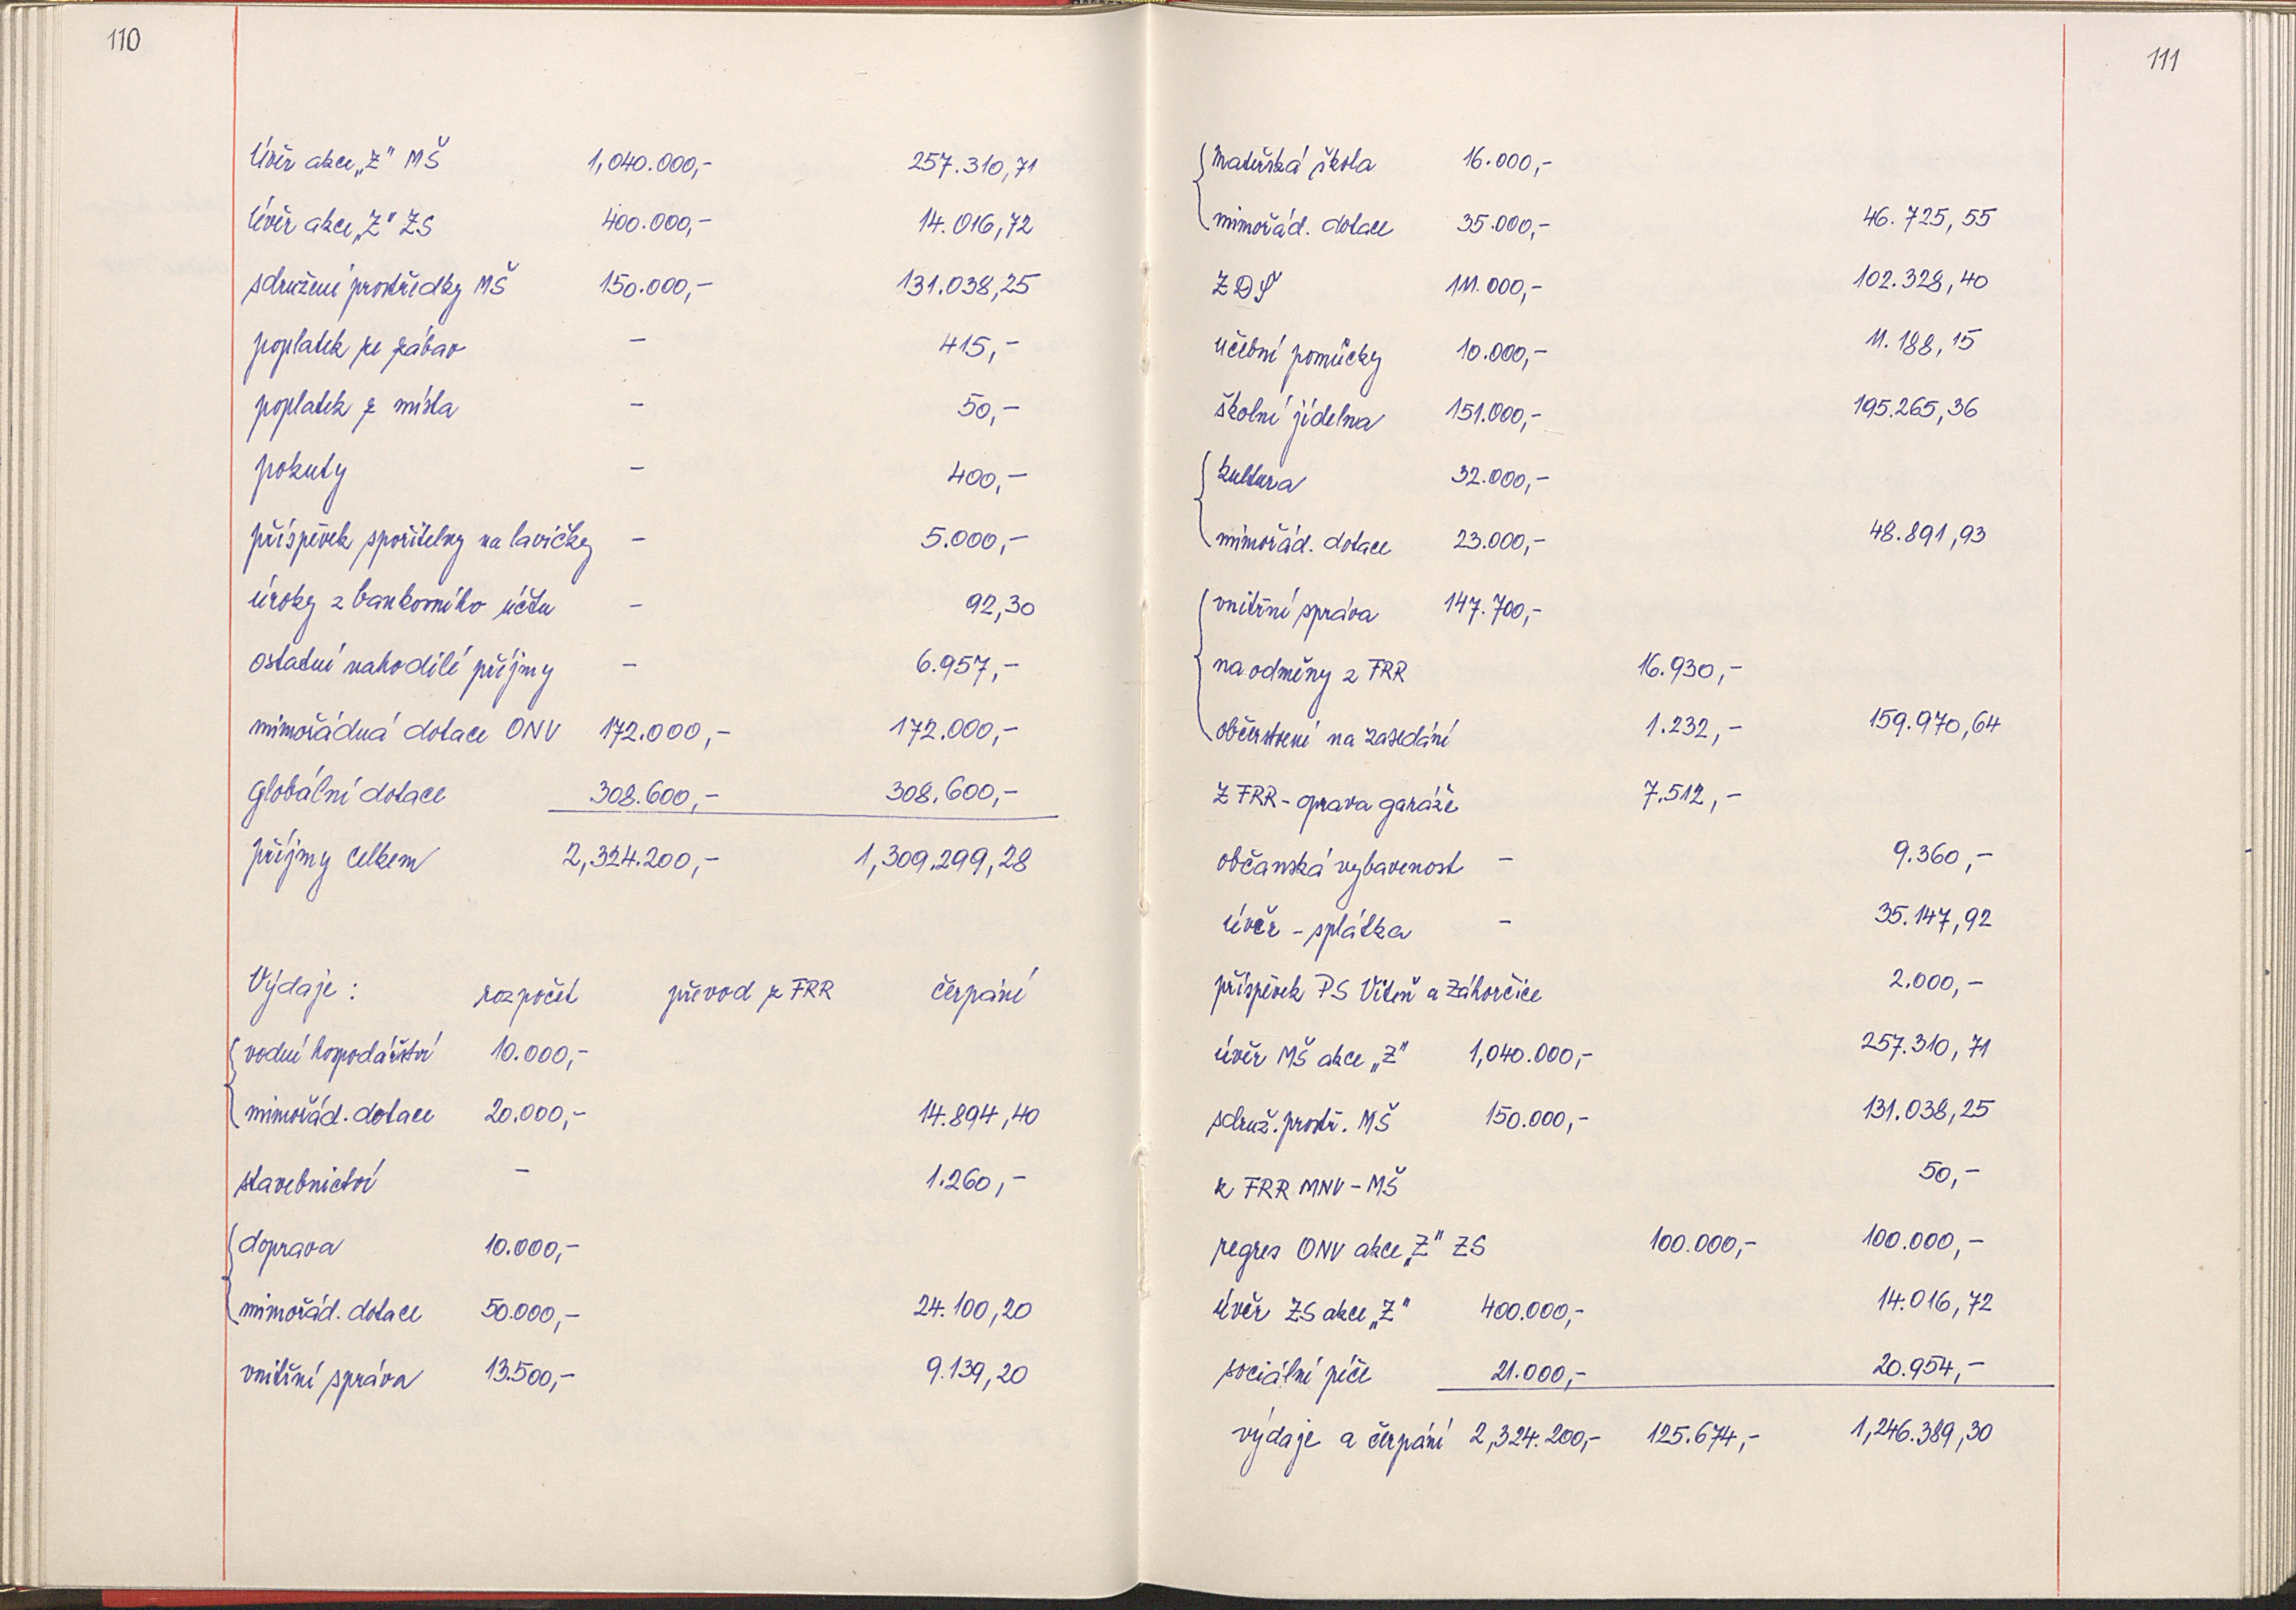 110
Úvěr akce „Z" MŠ 1,040.000,- 257.310,71
úvěr akce „Z" ZS 400.000,- 14.016,72
sdružení prostředky MŠ 150.000,- 131.038,25
poplatek ze zábav - 415,-
poplatek z místa - 50,-
pokuty - 400,-
příspěvek spořitelny na lavičky - 5.000,-
úroky z bankovního účtu - 92,30
ostatní nahodilé příjmy - 6.957,-
mimořádná dotace ONV 172.000,- 172.000,-
globální dotace 308.600,- 308.600,-
příjmy celkem 2,324.200,- 1,309.299,28
Výdaje: rozpočet převod z FRR čerpání
vodní hospodářství 10.000,-
mimořád. dotace 20.000,- 14.894,40
stavebnictví - 1.260,-
doprava 10.000,-
mimořád. dotace 50.000,- 24.100,20
vnitřní správa 13.500,- 9.139,20
111
Mateřská škola 16.000,-
mimořád. dotace 35.000,- 46.725,55
ZDŠ 111.000,- 102.328,40
učební pomůcky 10.000,- 11.188,15
školní jídelna 151.000,- 195.265,36
kultura 32.000,-
mimořád. dotace 23.000,- 48.891,93
vnitřní správa 147.700,-
na odměny z FRR 16.930,-
občerstvení na zasedání 1.232,- 159.970,64
Z FRR - oprava garáže 7.512,-
občanská vybavenost - 9.360,-
úvěr - splátka - 35.147,92
příspěvek PS Viteň a Záhorčice 2.000,-
úvěr MŠ akce „Z" 1,040.000,- 257.310,71
sdruž. prostř. MŠ 150.000,- 131.038,25
z FRR MNV - MŠ 50,-
regres ONV akce „Z" ZS 100.000,- 100.000,-
úvěr ZS akce „Z" 400.000,- 14.016,72
sociální péče 21.000,- 20.954,-
výdaje a čerpání 2,324.200,- 125.674,- 1,246.389,30